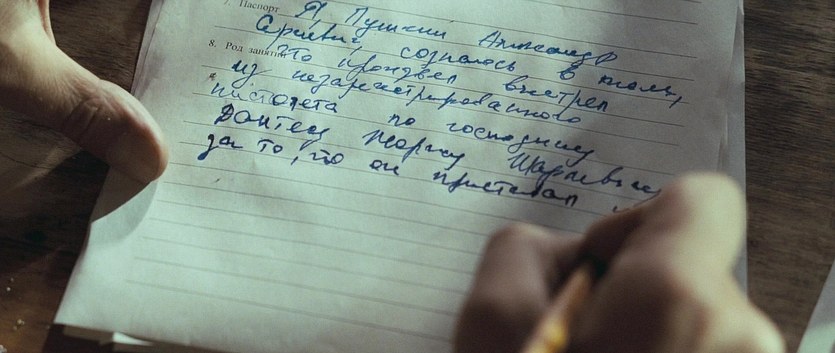 7. Паспорт Я, Пушкин Александр
Сергеевич, сознаюсь в том,
8. Род занятий что произвел выстрел
из незарегистрированного
пистолета по господину
Дантесу Жоржу Шарлевичу
за то, что он приставал